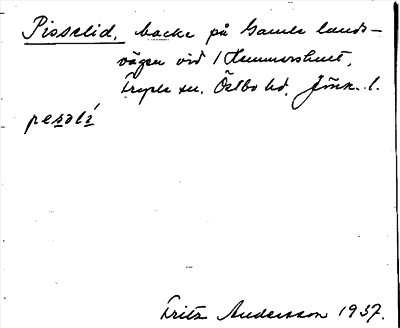 Pisselid, backe på Gamla lands-
vägen vid 1 Hummershult,
Tryple sn. Östbo hd. Jönk. l.
pesəlí
Fritz Andersson 1937.